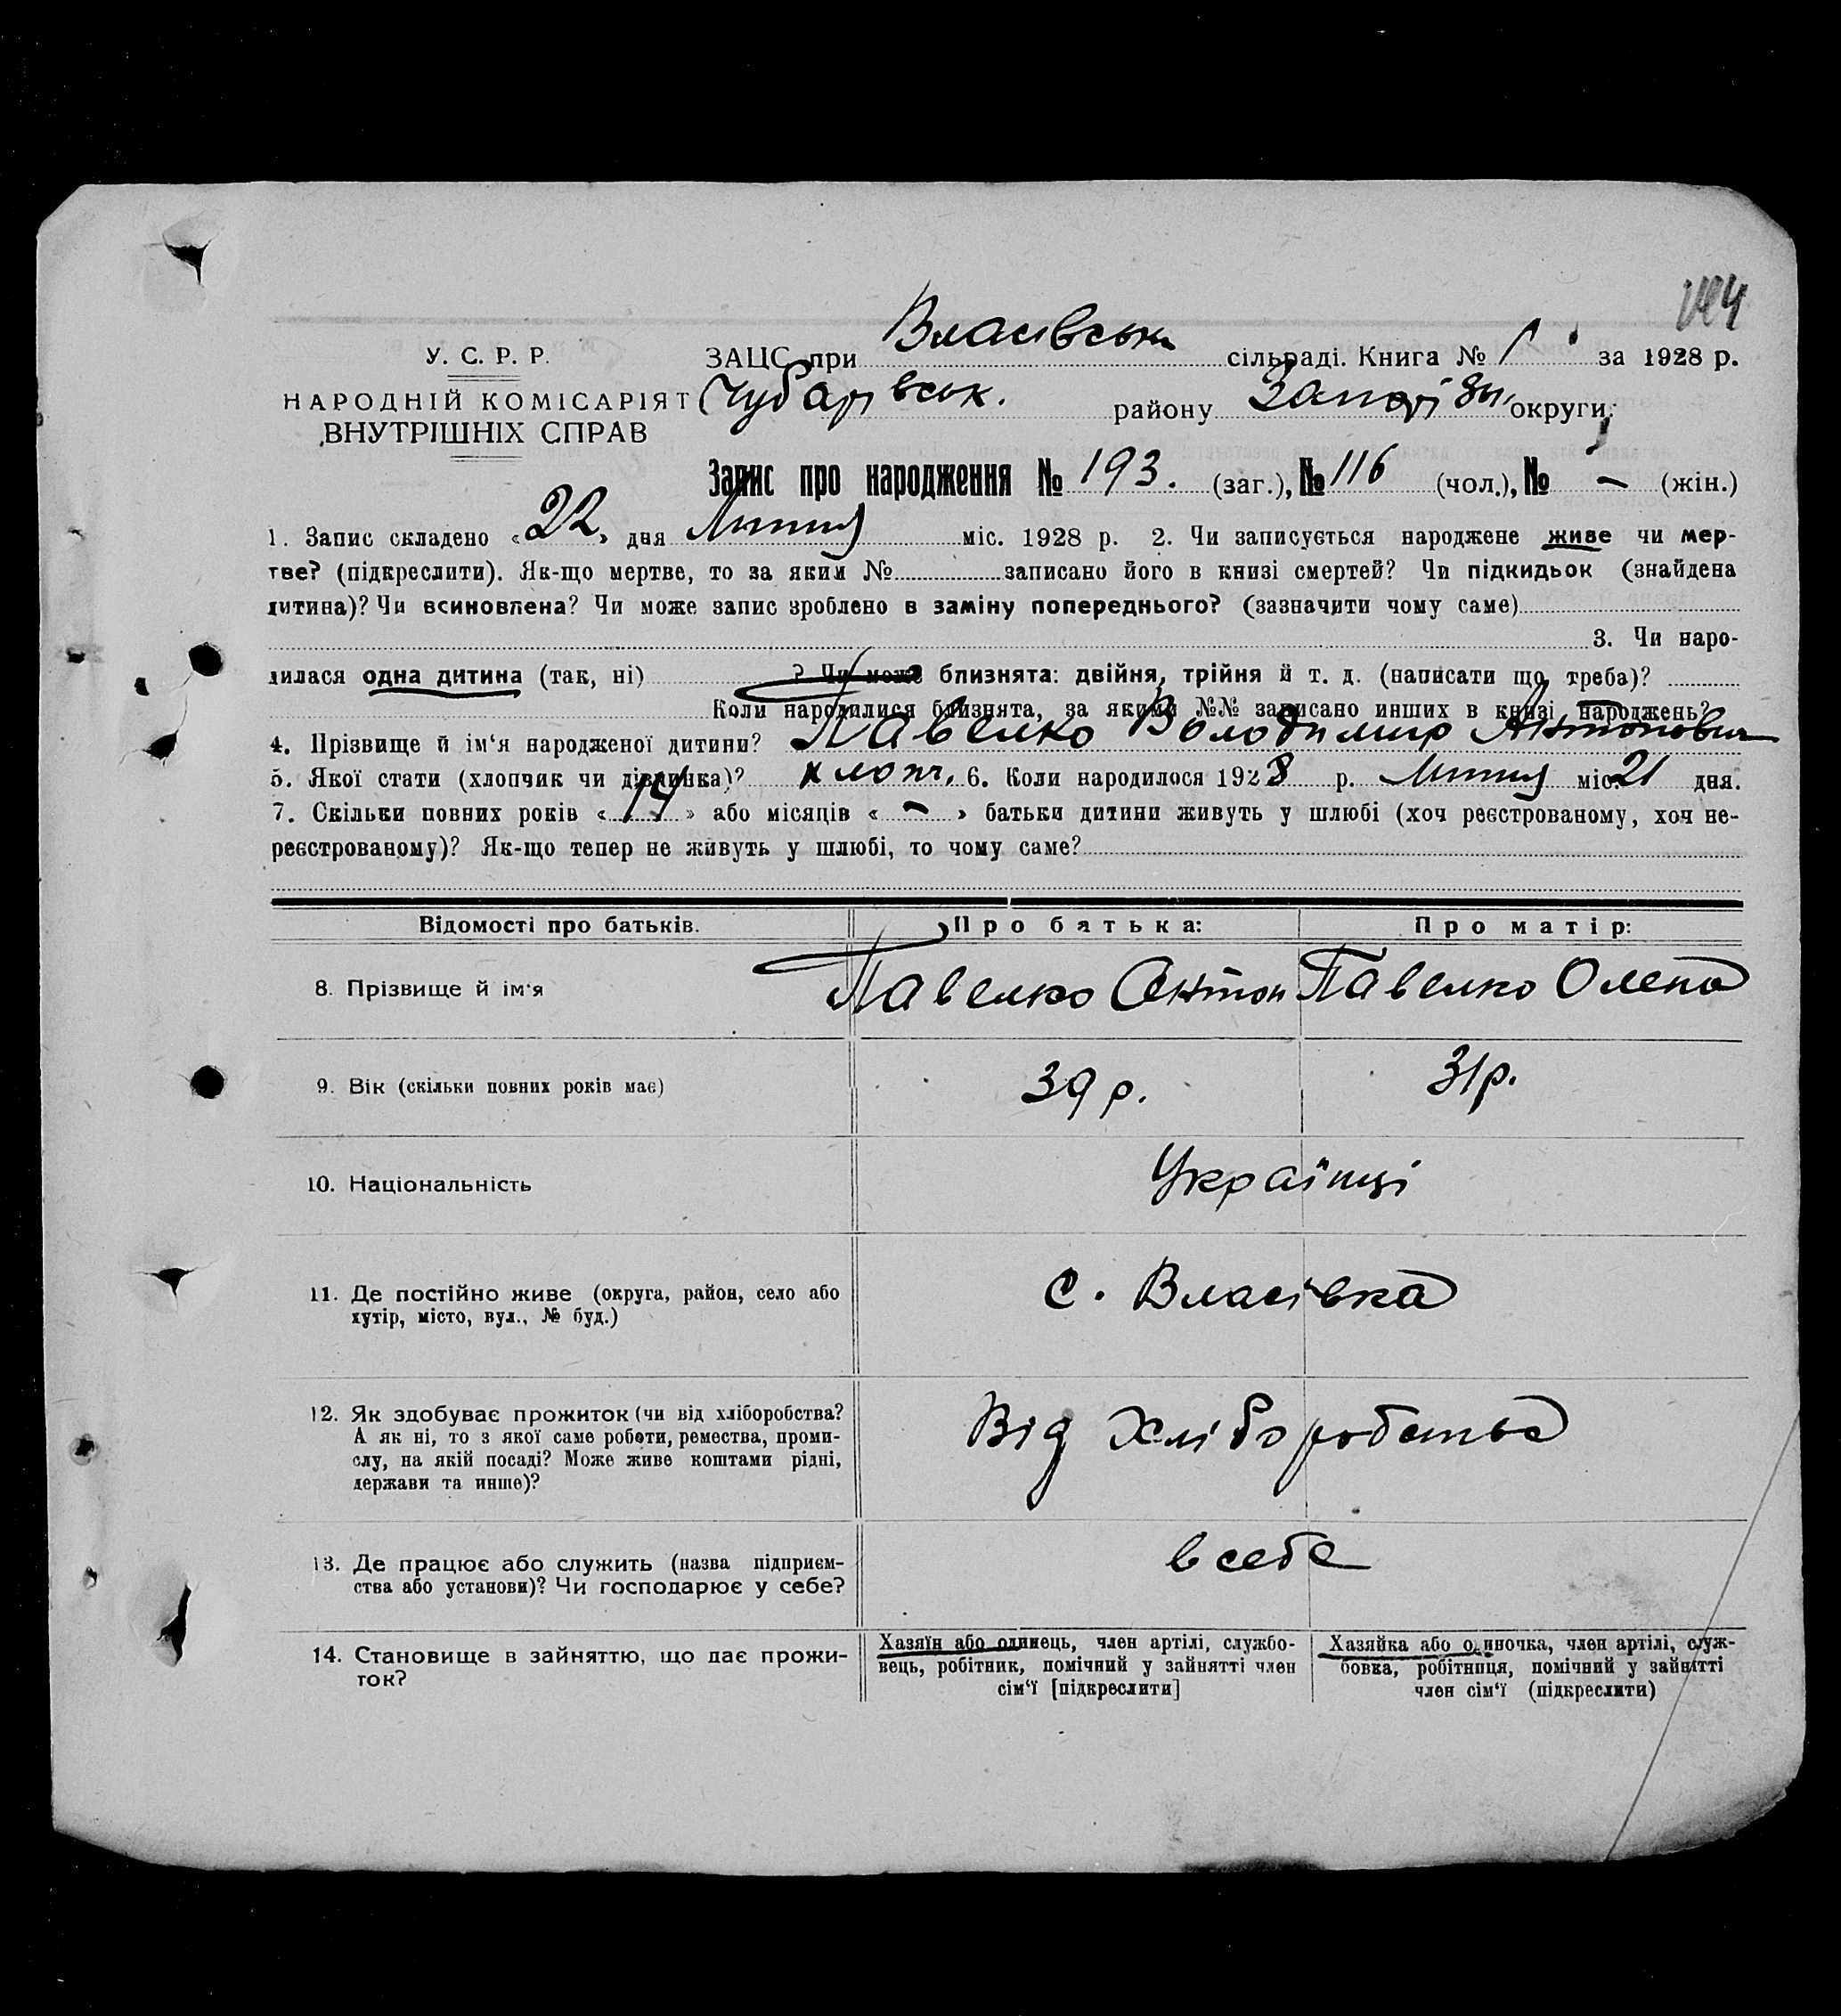 У. С. Р. Р.
НАРОДНІЙ КОМІСАРІЯТ
ВНУТРІШНІХ СПРАВ
ЗАЦС при Власівськ сільраді. Книга № 1 за 1928 р.
Чубарівськ. району Запоріз. округи.
Запис про народження № 193. (заг.), № 116 (чол.), № – (жін.)
1. Запис складено «22» дня Липня міс. 1928 р. 2. Чи записується народжене живе чи мер-
тве? (підкреслити). Як-що мертве, то за яким № записано його в книзі смертей? Чи підкидьок (знайдена
дитина)? Чи всиновлена? Чи може запис зроблено в заміну попереднього? (зазначити чому саме)
3. Чи наро-
дилася одна дитина (так, ні) ? Чи може близнята: двійня, трійня й т. д. (написати що треба)?
Коли народилися близнята, за якими №№ записано инших в книзі народжень?
4. Прізвище й ім‘я народженої дитини? Павелко Володимир Антонович
5. Якої стати (хлопчик чи дівчинка)? хлопч. 6. Коли народилося 1928 р. Липня міс. 21 дня.
7. Скільки повних років «14» або місяців «–» батьки дитини живуть у шлюбі (хоч реєстрованому, хоч не-
реєстрованому)? Як-що тепер не живуть у шлюбі, то чому саме?
Відомості про батьків. Про батька: Про матір:
8. Прізвище й ім‘я Павелко Антон Павелко Олена
9. Вік (скільки повних років має) 39 р. 31 р.
10. Національність Українці
11. Де постійно живе (округа, район, село або
хутір, місто, вул., № буд.) с. Власівка
12. Як здобуває прожиток (чи від хліборобства?
А як ні, то з якої саме роботи, ремества, проми-
слу, на якій посаді? Може живе коштами рідні,
держави та инше)? Від Хліборобства
13. Де працює або служить (назва підприєм-
ства або установи)? Чи господарює у себе? в себе
14. Становище в зайняттю, що дає прожи-
ток?
Хазяїн або одинець, член артілі, службо-
вець, робітник, помічний у зайнятті член
сім‘ї [підкреслити]
Хазяйка або одиночка, член артілі, служ-
бовка, робітниця, помічний у зайнятті
член сім‘ї (підкреслити)